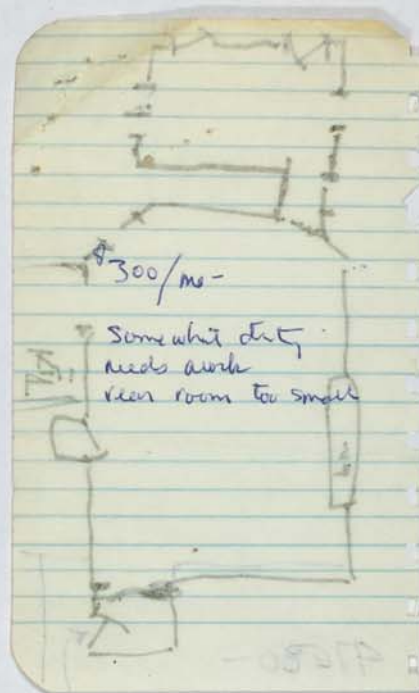 $300/mo-
Somewhat dirty
needs work
rear room too small